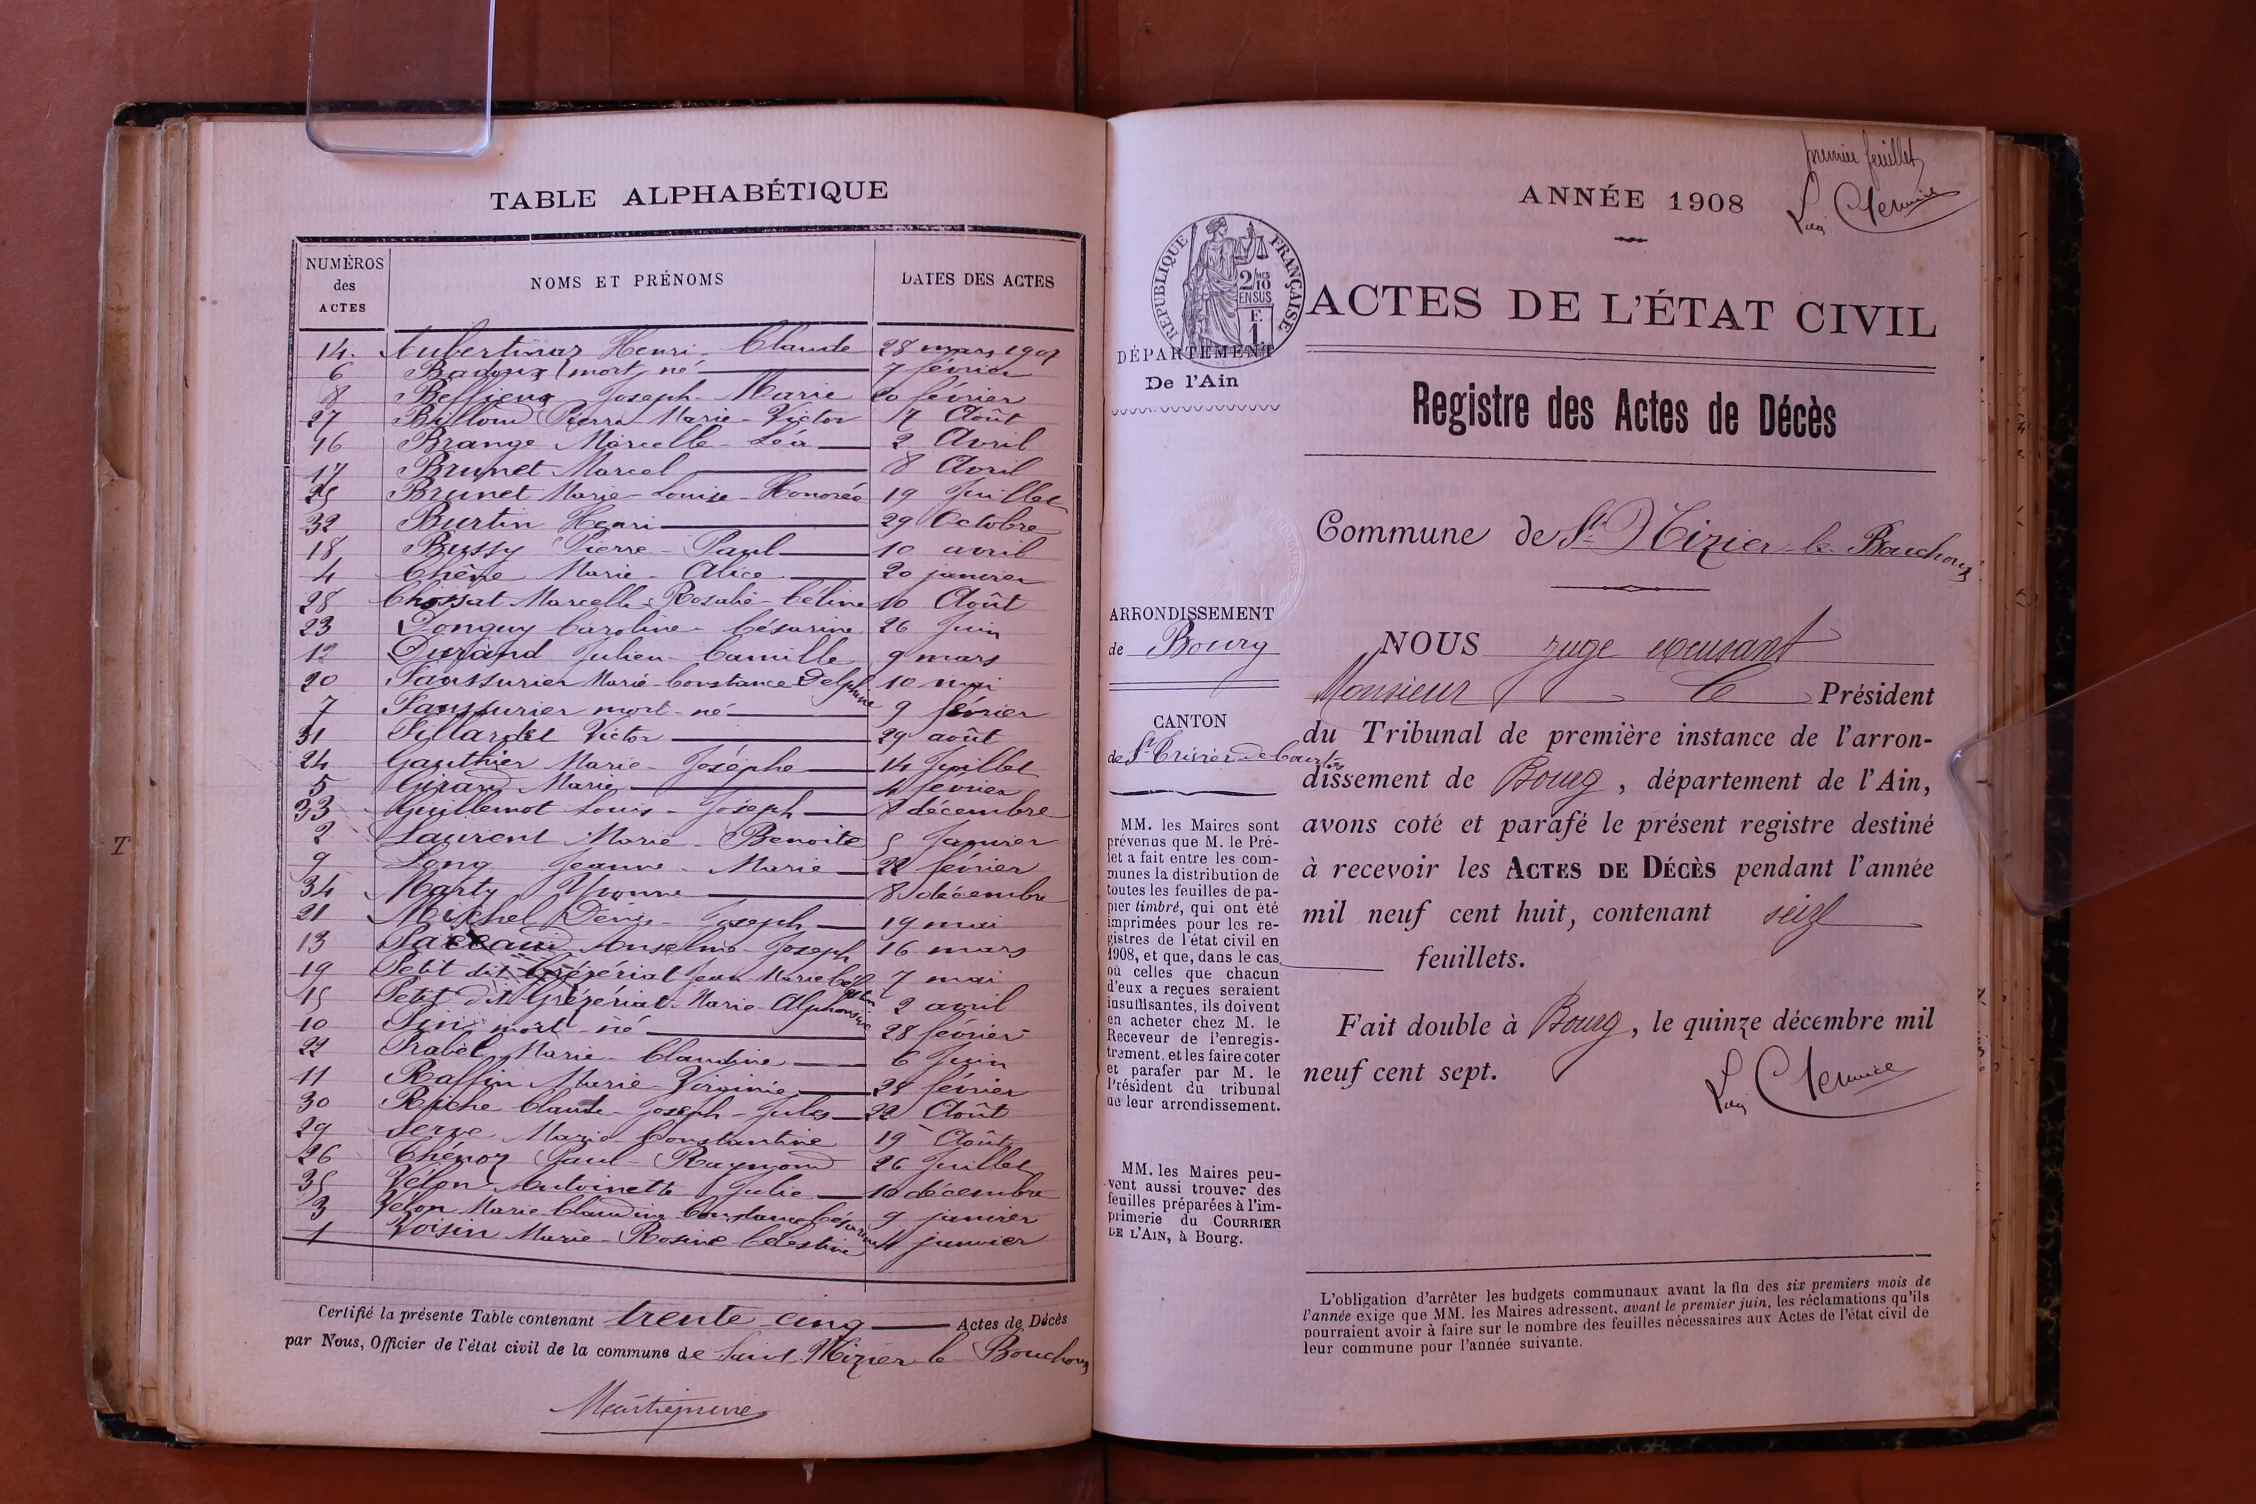 TABLE ALPHABÉTIQUE
NUMÉROS des ACTES
NOMS ET PRÉNOMS
DATES DES ACTES
14. Aubertinaz Henri Claude 28 mars 1907
6 Badoux mort né 7 février
8 Joseph Marie 20 février
27 Billoud Pierre Marie Victor 7 Août
16 Brange Marcelle Léa 2 Avril
17 Brunet Marcel 8 Avril
25 Brunet Marie Louise Honorée 19 Juillet
32 Burtin Henri 29 Octobre
18 Bussy Pierre Paul 10 avril
4 Chêne Marie Alice 20 janvier
28 Chossat Marcelle Rosalie Céline 10 Août
23 Donguy Caroline Césarine 26 Juin
12 Durand Julien Camille 9 mars
20 Faussurier Marie Constance Delphine 10 mai
7 Faussurier mort-né 9 février
31 Fillardet Victor 29 août
24 Gauthier Marie Josèphe 14 Juillet
5 Girard Marie 4 février
33 Guillemot Louis Joseph 8 décembre
2 Laurent Marie Benoite 5 Janvier
9 Long Jeanne Marie 22 février
34 Marty Yvonne 8 décembre
21 Michel Denis Joseph 19 mai
13 Anselme Joseph 16 mars
19 Petit dit Grézériat Jean Marie 7 mai
15 Petit dit Grézériat Marie Alphonsine 2 avril
10 Pin mort-né 28 février
22 Prabel Marie Claudine 6 Juin
11 Raffin Marie Virginie 28 février
30 Riche Claude Joseph Jules 22 Août
29 Serve Marie Constantine 19 Août
26 Thénoz Paul Raymond 26 Juillet
35 Vélon Antoinette Julie 10 décembre
3 Vélon Marie Claudine Constance Césarine 9 janvier
1 Voisin Marie Rosine Célestine 4 janvier
Certifié la présente Table contenant trente cinq Actes de Décès
par Nous, Officier de l'état civil de la commune de Saint Nizier le Bouchoux
premier feuillet
ANNÉE 1908
RÉPUBLIQUE FRANÇAISE
2/10 EN SUS
F. 1
ACTES DE L'ÉTAT CIVIL
DÉPARTEMENT
De l'Ain
Registre des Actes de Décès
Commune de St Nizier le Bouchoux
ARRONDISSEMENT
de Bourg
CANTON
de St Trivier de Courtes
MM. les Maires sont
prévenus que M. le Pré-
fet a fait entre les com-
munes la distribution de
toutes les feuilles de pa-
pier timbré, qui ont été
imprimées pour les re-
gistres de l'état civil en
1908, et que, dans le cas
où celles que chacun
d'eux a reçues seraient
insuffisantes, ils doivent
en acheter chez M. le
Receveur de l'enregis-
trement, et les faire coter
et parafer par M. le
Président du tribunal
de leur arrondissement.
MM. les Maires peu-
vent aussi trouver des
feuilles préparées à l'im-
primerie du COURRIER
DE L'AIN, à Bourg.
NOUS juge excusant
Monsieur le Président
du Tribunal de première instance de l'arron-
dissement de Bourg, département de l'Ain,
avons coté et parafé le présent registre destiné
à recevoir les ACTES DE DÉCÈS pendant l'année
mil neuf cent huit, contenant seize
feuillets.
Fait double à Bourg, le quinze décembre mil
neuf cent sept.
L'obligation d'arrêter les budgets communaux avant la fin des six premiers mois de
l'année exige que MM. les Maires adressent, avant le premier juin, les réclamations qu'ils
pourraient avoir à faire sur le nombre des feuilles nécessaires aux Actes de l'état civil de
leur commune pour l'année suivante.